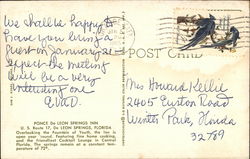 We shall be happy to
have you bring a
guest on January 21
expect the meeting
will be a very
interesting one
POST CARD
Mrs Howard Kellie
2405 Euston Road
Winter Park, Florida
32789
PONCE De LEON SPRINGS INN
U. S. Route 17, De LEON SPRINGS, FLORIDA
Overlooking the Fountain of Youth, the Inn is
open year 'round. Featuring fine home cooking,
and the friendliest Cocktail Lounge in Central
Florida. The springs remain at a constant tem-
perature of 72°.